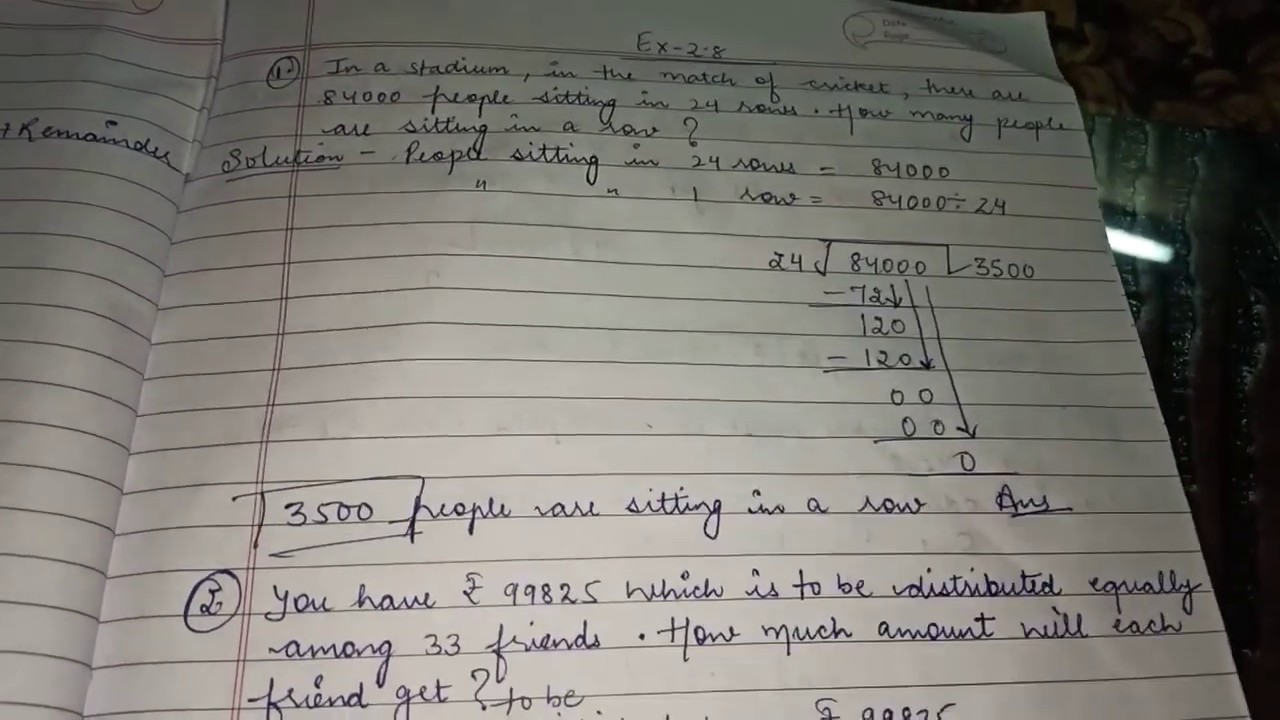 Date
Page
Ex-2.8
1. In a stadium, in the match of cricket, there are
84000 people sitting in 24 rows. How many people
are sitting in a row?
Remainder
Solution - People sitting in 24 rows = 84000
" " 1 row = 84000÷24
24 84000 3500
-72
120
-120
00
00
0
3500 people are sitting in a row Ans
2. You have ₹ 99825 which is to be distributed equally
among 33 friends. How much amount will each
friend get?
to be
₹ 99825